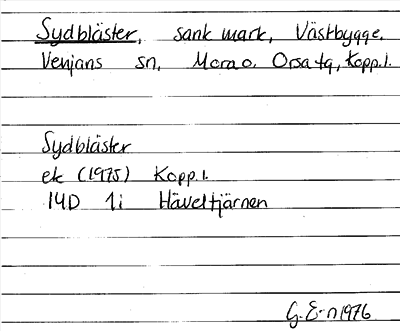 Sydbläster, sank mark, Västbygge,
Venjans sn, Mora o. Orsa tg, Kopp.l.
Sydbläster
ek (1975) Kopp.l.
14D 1i Häveltjärnen
G. E-n 1976